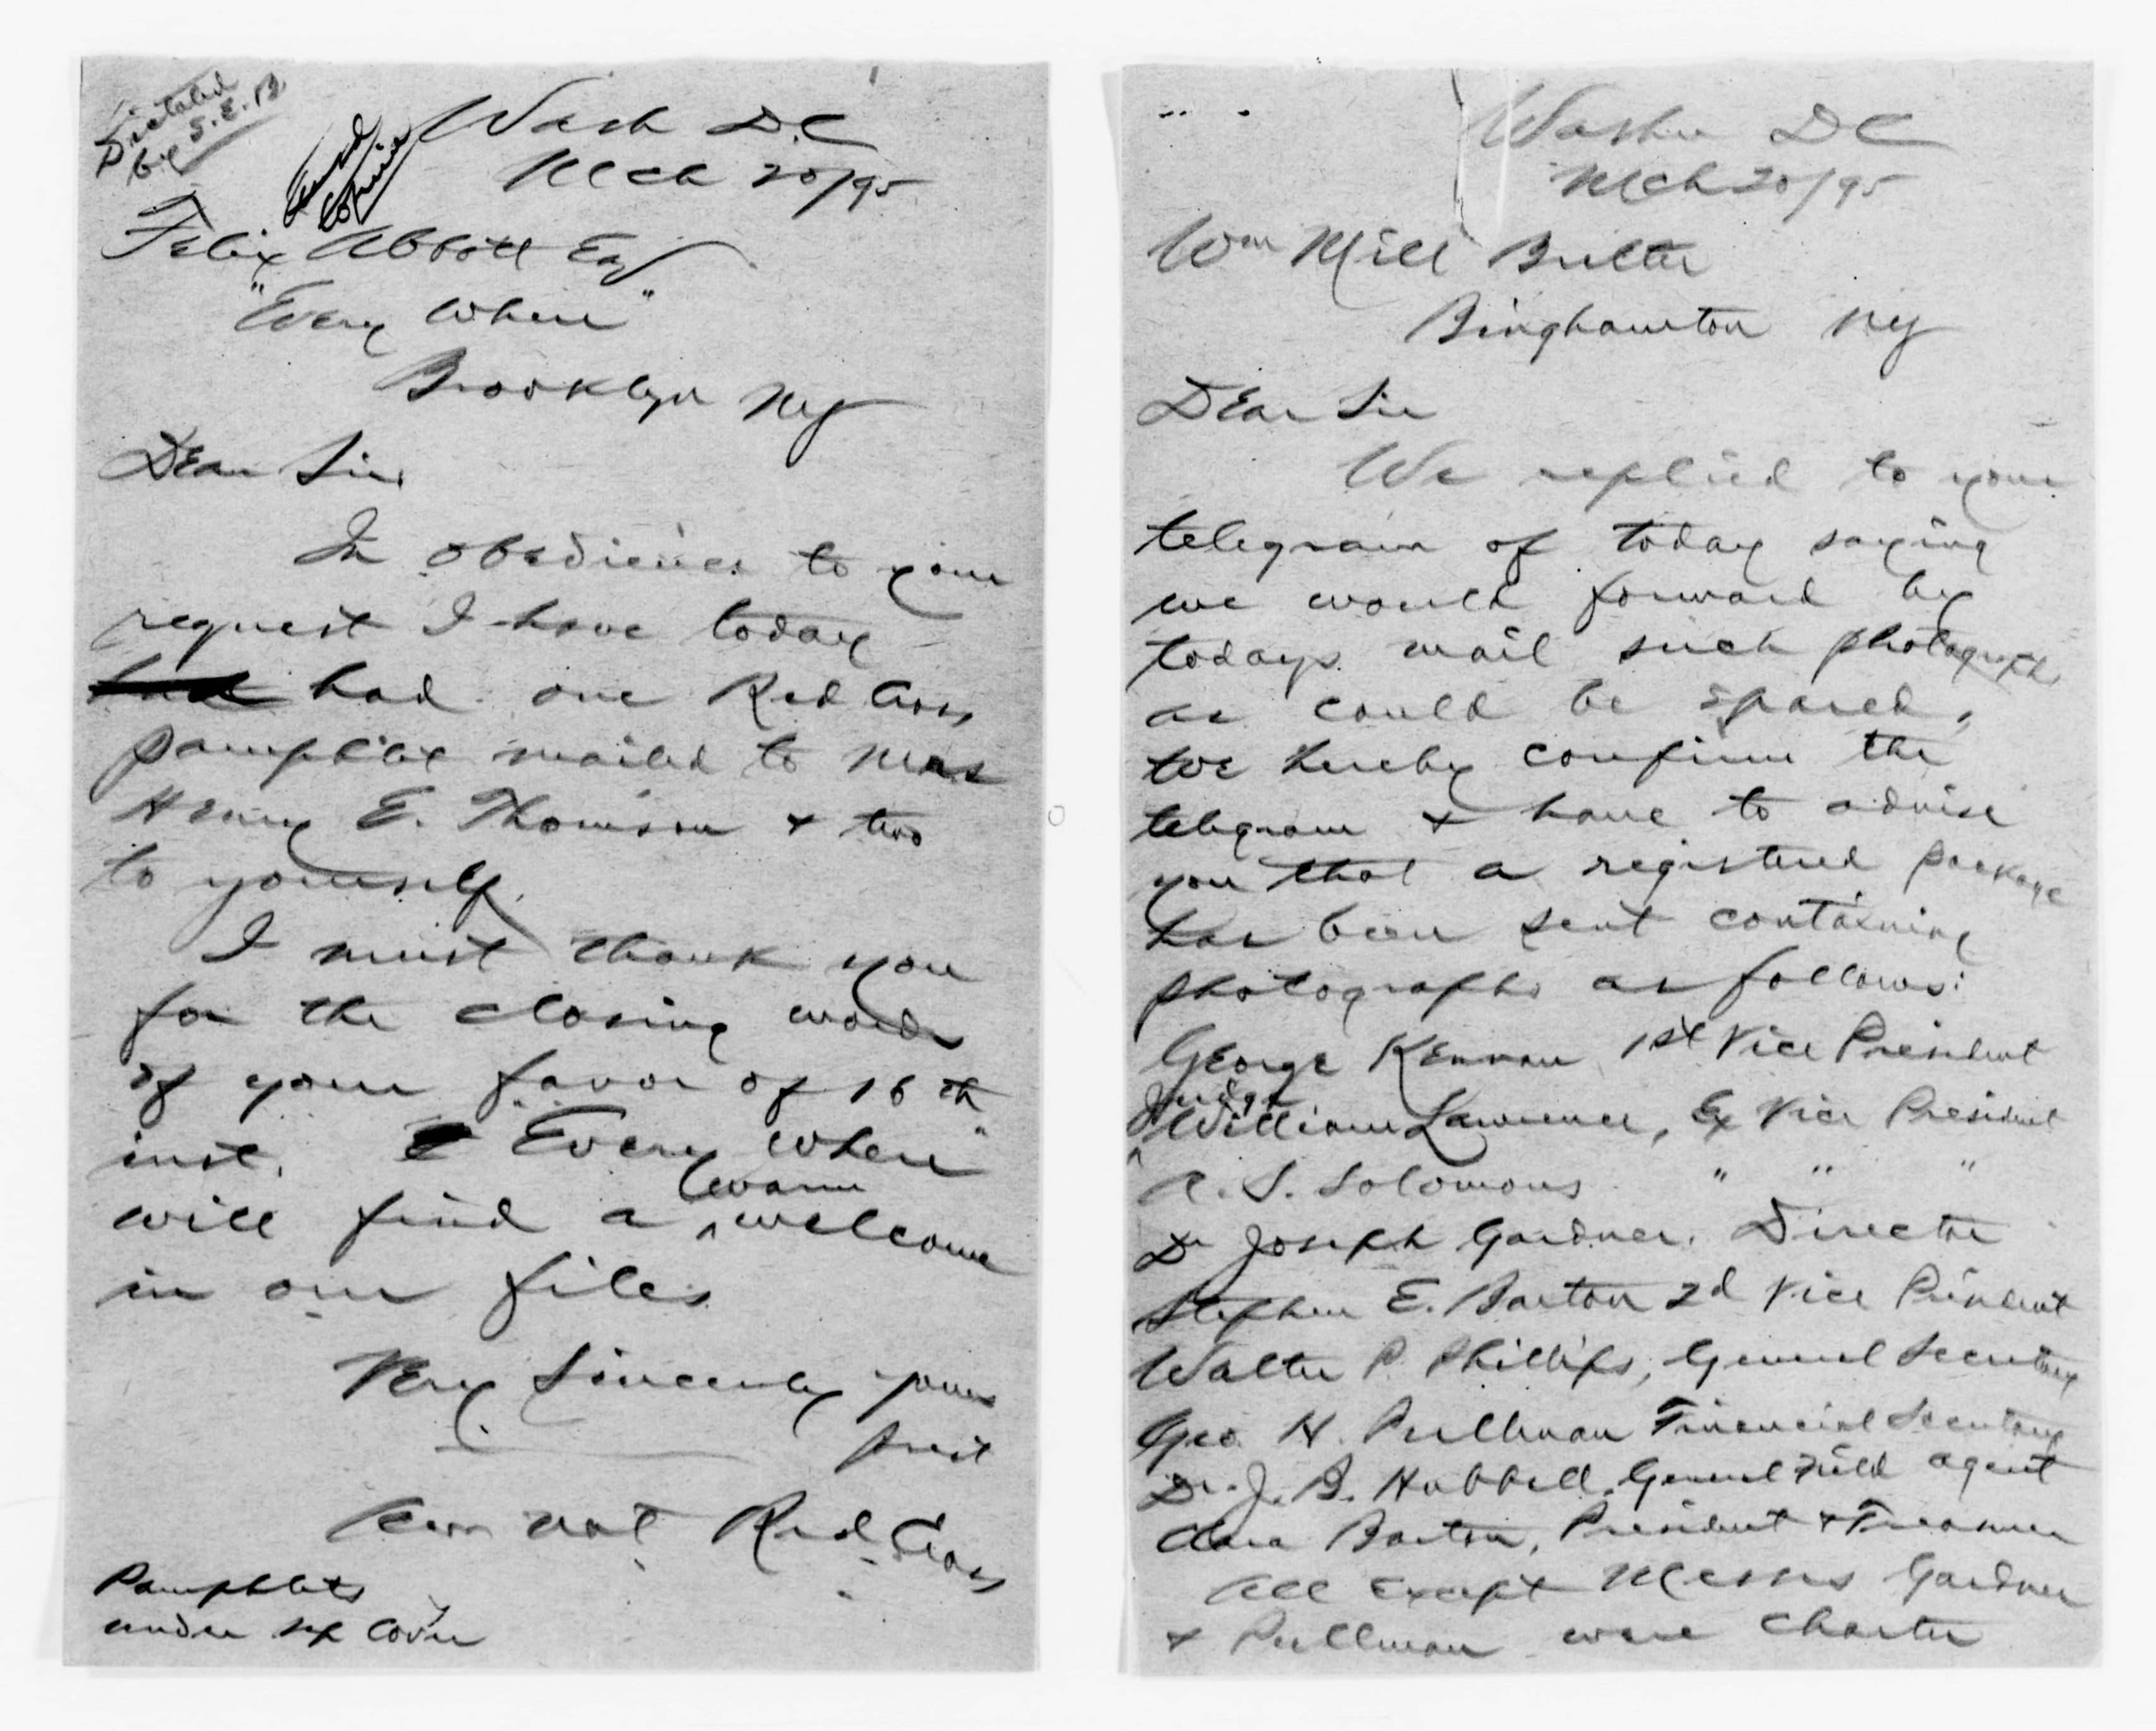 Dictated
by S.E.B.
Wash D.C
Mch 20/95
Felix Abbott Esq
"Every Where"
Brooklyn NY
Dear Sir,
In obedience to your
request I have today
had one Red Cross
pamphlet mailed to Mrs
Henry E. Thomson & two
to yourself.
I must thank you
for the closing words
of your favor of 16th
inst. Every Where"
will find a warm welcome
in our files
Very Sincerely yours
prest
Am nat Red Cross
Pamphlets
under sep cover
Washn DC
Mch 20/95
Wm Mill Butler
Binghamton NY
Dear Sir
We replied to your
telegram of today saying
we would forward by
todays mail such photographs
as could be spared,
We hereby confirm the
telegram & have to advise
you that a registered package
has been sent containing
photographs as follows:
George Kennan 1st Vice President
Judge William Lawrence, Ex Vice President
A. S. Solomons " " "
Dr Joseph Gardner, Director
Stephen E. Barton 2d Vice President
Walter P. Phillips, General Secretary
Geo. H. Pullman Financial Secretary
Dr. J. B. Hubbell, General Field agent
Clara Barton, President & Treasurer
All except Messrs Gardner
& Pullman were charter